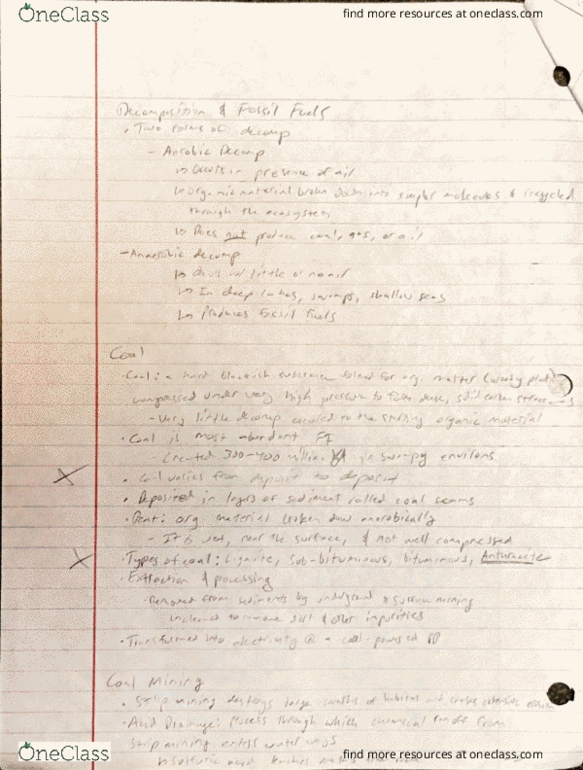 OneClass
find more resources at oneclass.com
Decomposition & Fossil Fuels
• Two forms of decomp
- Aerobic Decomp
↳ Occurs in presence of air
↳ organic material broken down into simpler molecules & recycled
through the ecosystem
↳ Does not produce coal, gas, or oil
- Anaerobic decomp
↳ Occurs w/ little or no air
↳ In deep lakes, swamps, shallow seas
↳ Produces Fossil Fuels
Coal
• Coal: a hard blackish substance formed for org. matter (woody plant)
compressed under very high pressure to form dense, solid carbon
- Very little decomp occured to the starting organic material
• Coal is most abundant FF
- Created 300-400 million in swampy environs
• Coal varies from deposit to deposit
• Deposited in layers of sediment called coal seams
• Peat: org material broken down anaerobically
- It is wet, near the surface, & not well compressed
• Types of coal: Lignite, Sub-bituminous, bituminous, Anthracite
• Extraction & processing
- Removed from sediments by underground & surface mining
cleaned to remove dirt & other impurities
• Transformed into electricity @ a coal-powered PP
Coal Mining
• Strip mining destroys large swaths of habitat and causes extensive
• Acid Drainage: process through which chemical runoff from
strip mining enters water ways
↳ Sulfuric acid
OneClass
find more resources at oneclass.com